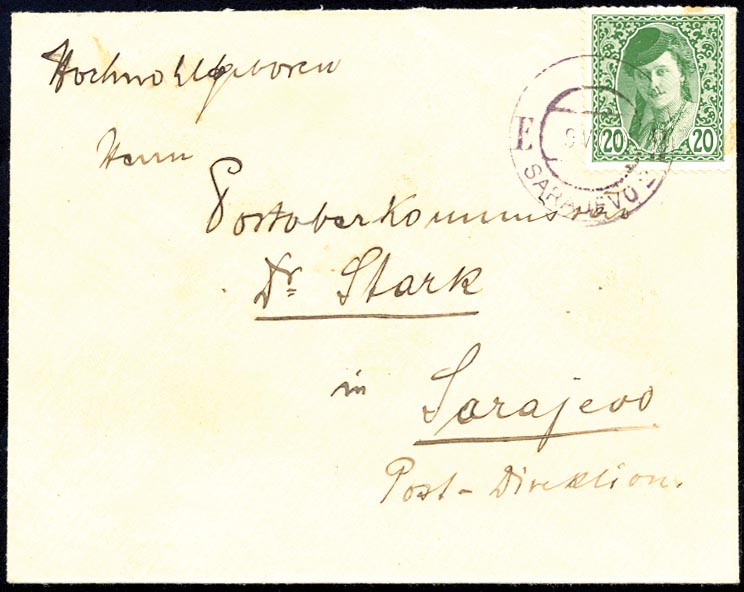 Hochwohlgeboren
Herrn
Postoberkommissär
Dr. Stark
in
Sarajevo
Post-Direktion.
20 20
E
SARAJEVO